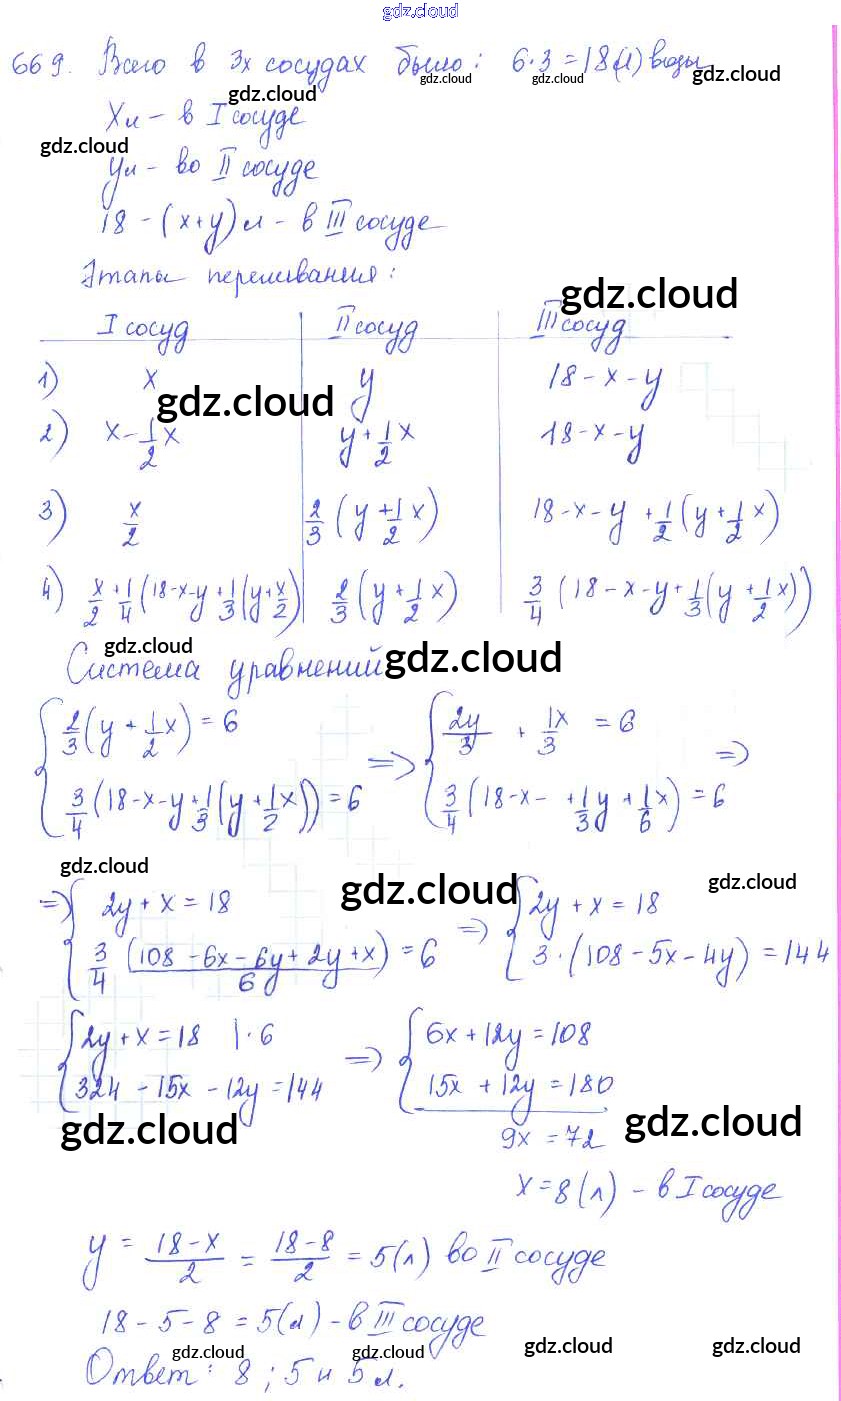 gdz.cloud
669. Всего в 3х сосудах было: 6·3=18(л) воды
gdz.cloud gdz.cloud gdz.cloud
gdz.cloud
Xл - в I сосуде
gdz.cloud
yл - во II сосуде
18-(x+y)л - в III сосуде
Этапы переливания:
gdz.cloud
I сосуд | II сосуд | III сосуд
1) x | y | 18-x-y
gdz.cloud
2) x-1/2x | y+1/2x | 18-x-y
3) x/2 | 2/3(y+1/2x) | 18-x-y+1/2(y+1/2x)
4) x/2+1/4(18-x-y+1/3(y+x/2) | 2/3(y+1/2x) | 3/4(18-x-y+1/3(y+1/2x))
gdz.cloud
Система уравнений gdz.cloud
{2/3(y+1/2x)=6 => {2y/3+1x/3=6 =>
{3/4(18-x-y+1/3(y+1/2x))=6 {3/4(18-x- +1/3y+1/6x)=6
gdz.cloud gdz.cloud gdz.cloud
=> {2y+x=18 => {2y+x=18
{3/4 (108-6x-6y+2y+x)/6=6 {3·(108-5x-4y)=144
{2y+x=18 |·6 => {6x+12y=108
{324-15x-12y=144 {15x+12y=180
gdz.cloud gdz.cloud
9x=72
x=8(л) - в I сосуде
y=(18-x)/2=(18-8)/2=5(л) во II сосуде
18-5-8=5(л) - в III сосуде
gdz.cloud gdz.cloud gdz.cloud gdz.cloud
Ответ: 8; 5 и 5 л.